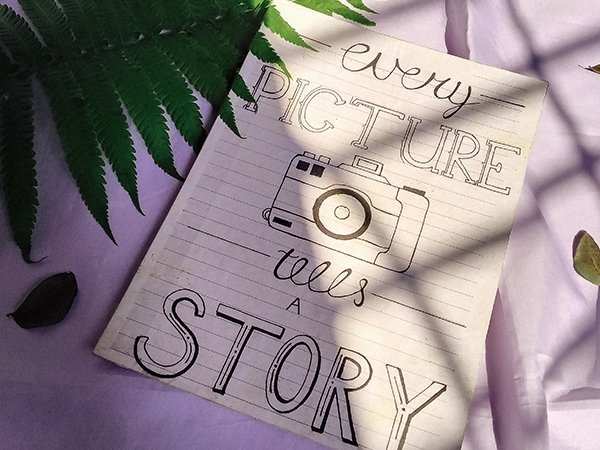 every
PICTURE
tells
A
STORY